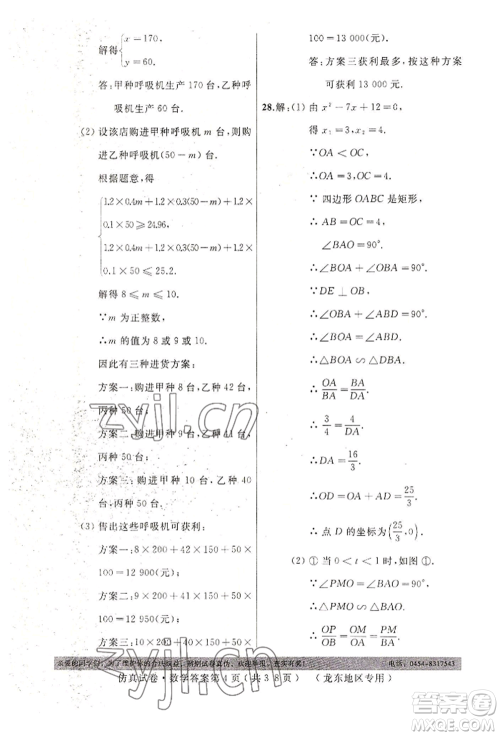 x=170,
解得
y=60.
答:甲种呼吸机生产 170 台,乙种呼
吸机生产 60 台.
(2) 设该店购进甲种呼吸机 m 台,则购
进乙种呼吸机(50-m)台.
根据题意,得
1.2×0.4m+1.2×0.3(50-m)+1.2×
0.1×50≥24.96,
1.2×0.4m+1.2×0.3(50-m)+1.2×
0.1×50≤25.2.
解得 8≤m≤10.
∵m 为正整数,
∴m 的值为 8 或 9 或 10.
因此有三种进货方案:
方案一:购进甲种 8 台,乙种 42 台,
丙种 50 台.
方案二:购进甲种 9 台,乙种 41 台,
丙种 50 台.
方案三:购进甲种 10 台,乙种 40 台,
丙种 50 台.
(3) 售出这些呼吸机可获利:
方案一:8×200+42×150+50×
100=12 900(元);
方案二:9×200+41×150+50×
100=12 950(元);
方案三:10×200+40×150+50×
100=13 000(元)
答:方案三获利最多,按这种方案
可获利 13 000 元.
28.解:(1) 由 x²-7x+12=0,
得 x₁=3,x₂=4.
∵OA<OC,
∴OA=3,OC=4.
∵四边形 OABC 是矩形,
∴AB=OC=4,
∠BAO=90°.
∴∠BOA+∠OBA=90°.
∵DE⊥OB,
∴∠OBA+∠ABD=90°.
∴∠BOA=∠ABD.
∴△BOA∽△DBA.
∴OA/BA=BA/DA.
∴3/4=4/DA.
∴DA=16/3.
∴OD=25/3.
∴点 D 的坐标为(25/3,0).
(2) ① 当 0<t<1 时,如图①.
∵∠PMO=∠BAO=90°,
∴PM∥AB.
∴△PMO∽△BAO.
∴OP/OB=PM/BA=OM/OA.
电话:0454-8317543
仿真试卷·数学答案第4页(共38页) (龙东地区专用)
zyjl.cn
zyjl.cn